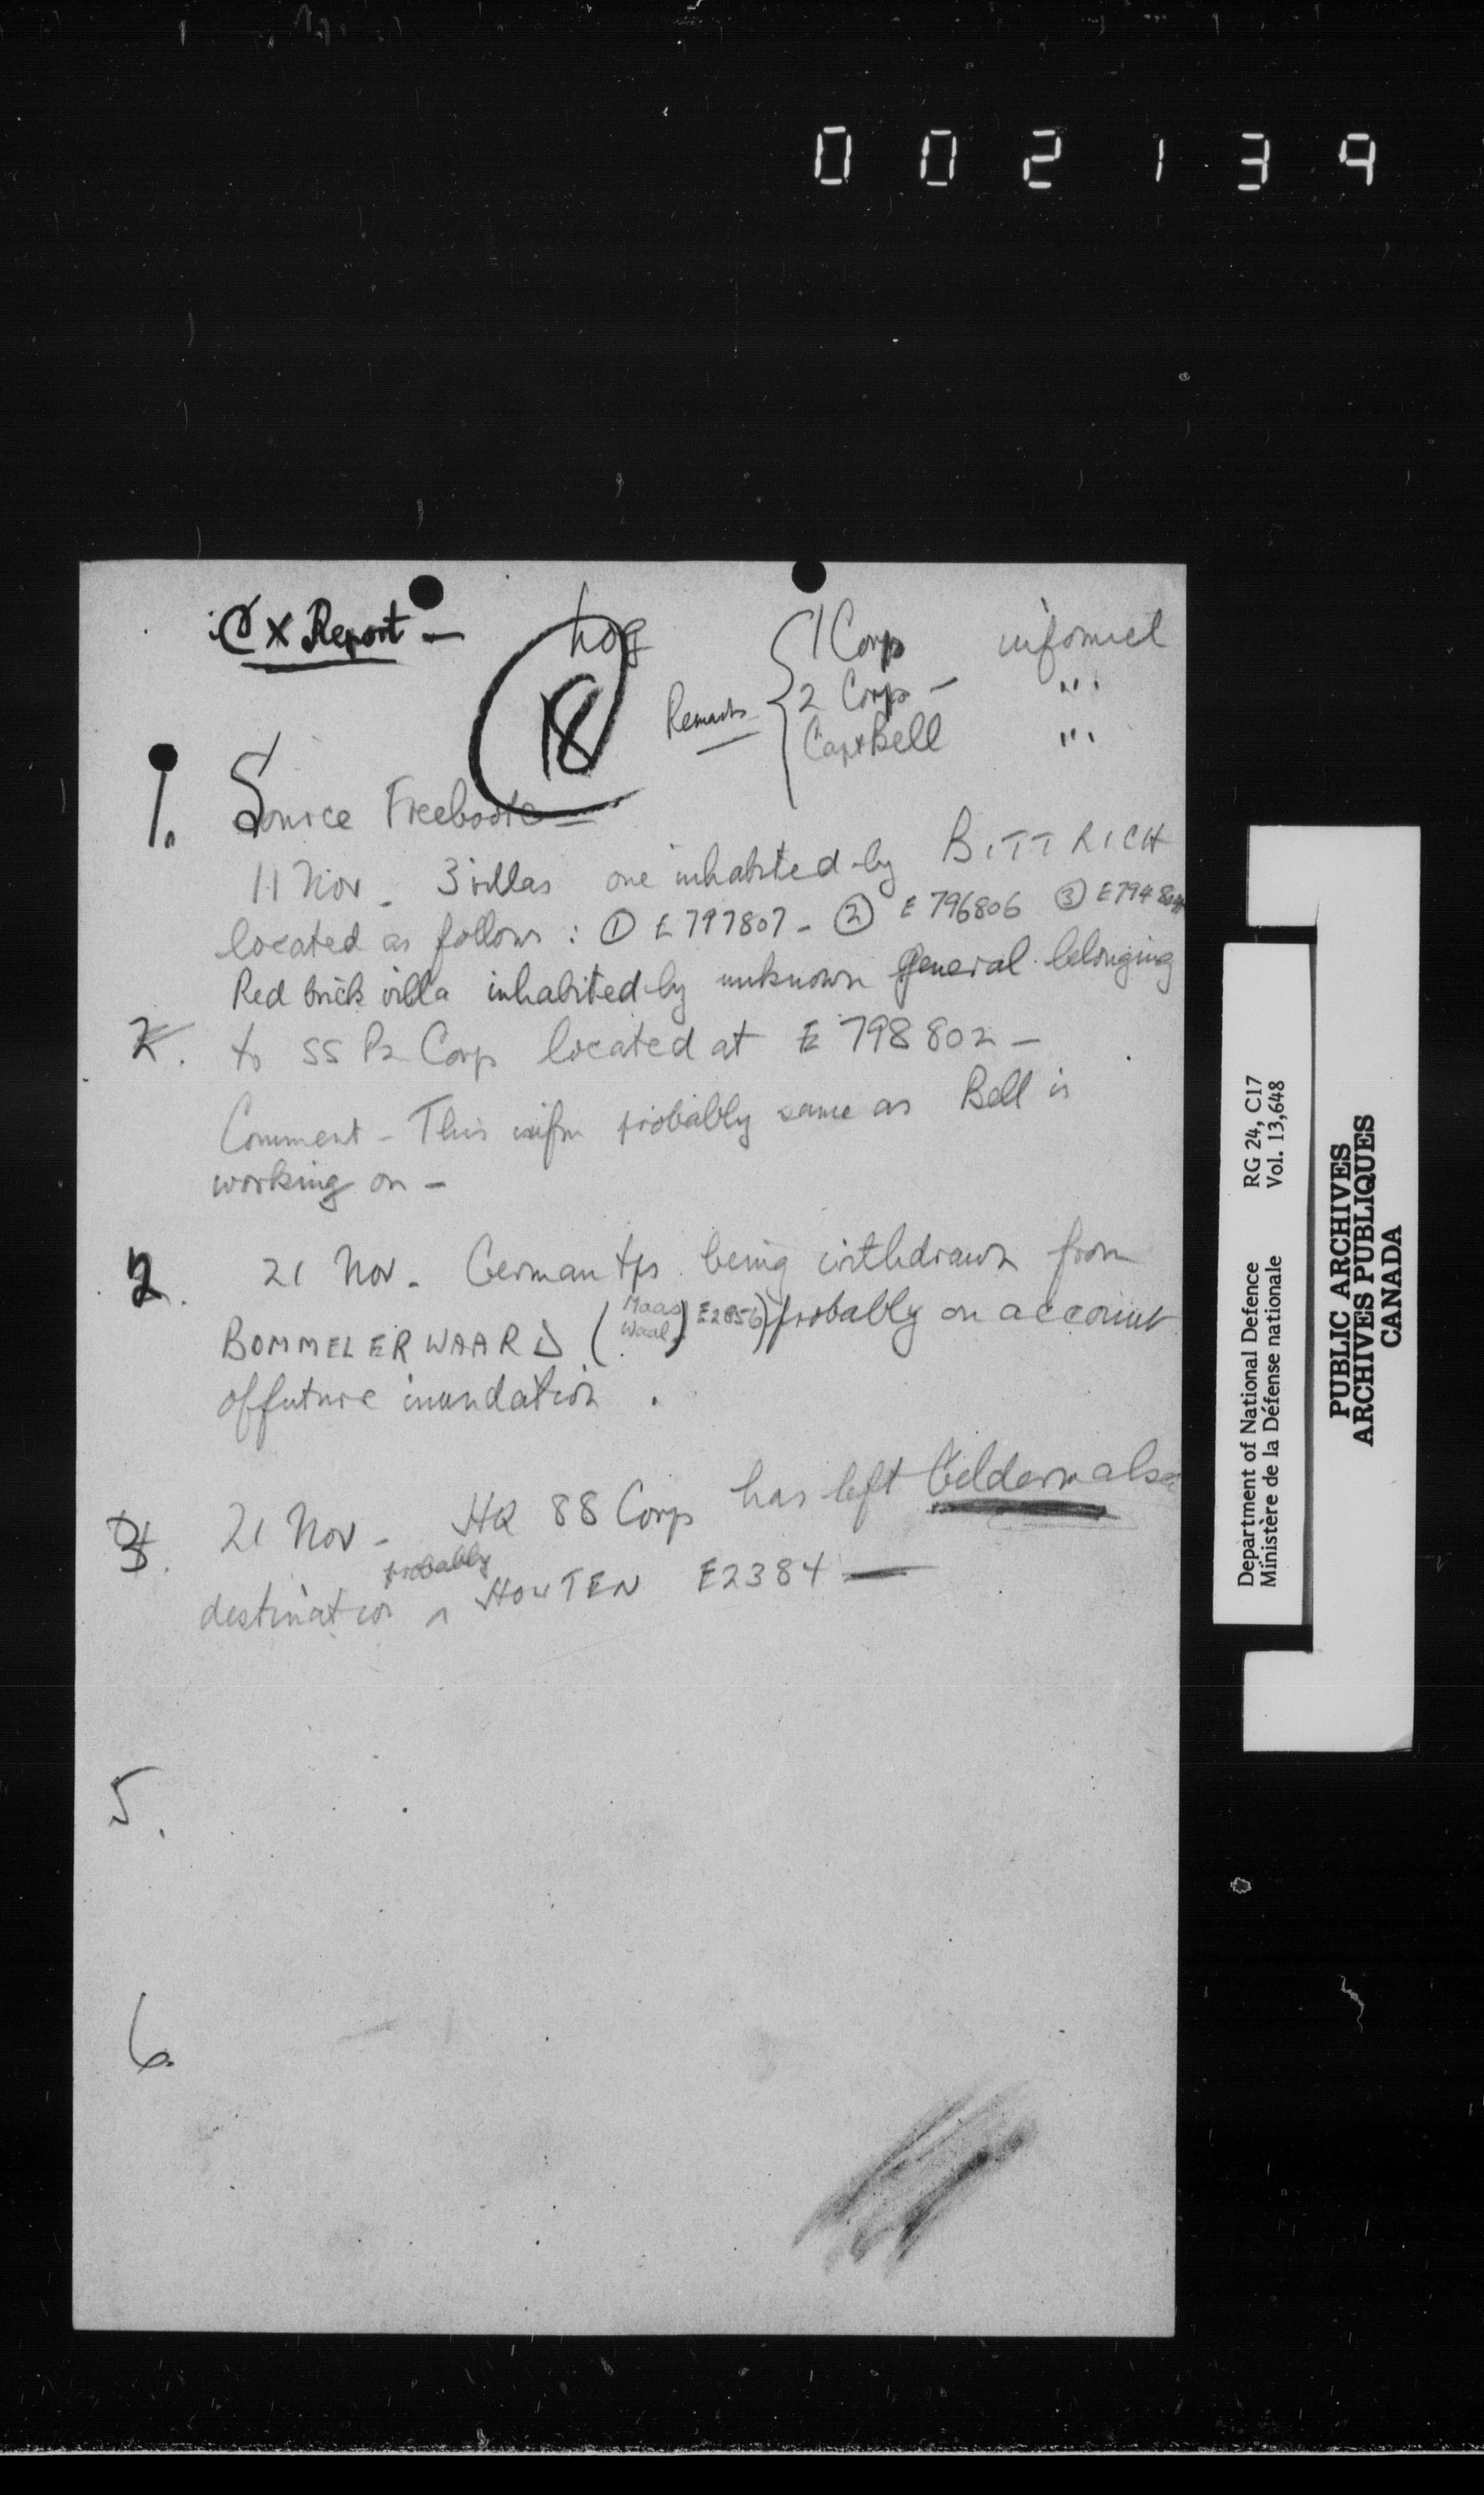 002139
CX Report —
Log
18
Remarks
1 Corp informed
2 Corps — " "
Capt Bell " "
1. Source Freebooter
11 Nov - 3 villas one inhabited by BITTRICH
located as follows : ① E 797807 - ② E 796806 ③ E794804
Red brick villa inhabited by unknown general belonging
2. to SS Pz Corp located at E 798802 —
Comment - This infm probably same as Bell is
working on -
2. 21 Nov. German tps being withdrawn from
BOMMELERWAARD (Maas Waal) E2856) probably on account
of future inundation .
3. 21 Nov - HQ 88 Corp has left Geldermalsen
destination probably HOUTEN E2384 —
5.
6.
Department of National Defence RG 24, C17
Ministère de la Défense nationale Vol. 13,648
PUBLIC ARCHIVES
ARCHIVES PUBLIQUES
CANADA